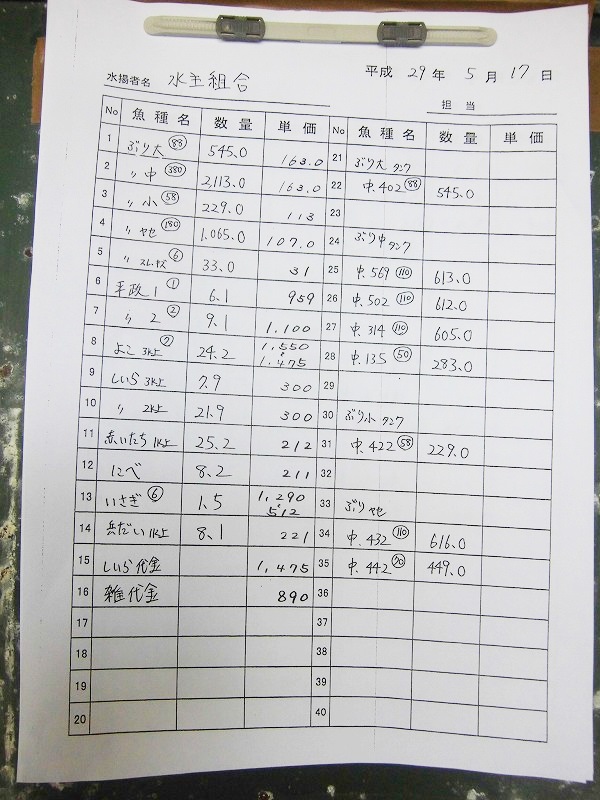 平成 29年 5月 17日
水揚者名 水主組合
担当
No 魚種名 数量 単価 No 魚種名 数量 単価
1 ぶり大 88 545.0 163.0 21 ぶり大タンク
2 〃中 380 2113.0 163.0 22 中.402 88 545.0
3 〃小 58 229.0 113 23
4 〃ヤセ 180 1.065.0 107.0 24 ぶり中タンク
5 〃 6 33.0 31 25 中.569 110 613.0
6 平政1 1 6.1 959 26 中.502 110 612.0
7 〃 2 2 9.1 1.100 27 中.314 110 605.0
8 よこ 3k上 7 24.2 1.550 1.475 28 中.135 50 283.0
9 しいら 3k上 7.9 300 29
10 〃 2k上 21.9 300 30 ぶり小タンク
11 赤いたち 1k上 25.2 212 31 中.422 58 229.0
12 にべ 8.2 211 32
13 いさぎ 6 1.5 1,290 512 33 ぶりヤセ
14 兵だい 1k上 8.1 221 34 中.432 110 616.0
15 しいら代金 1,475 35 中.442 70 449.0
16 雑代金 890 36
17 37
18 38
19 39
20 40